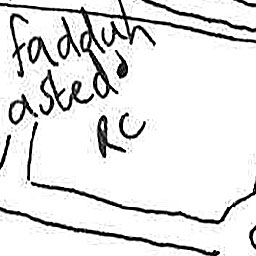 faddah
asted
RC